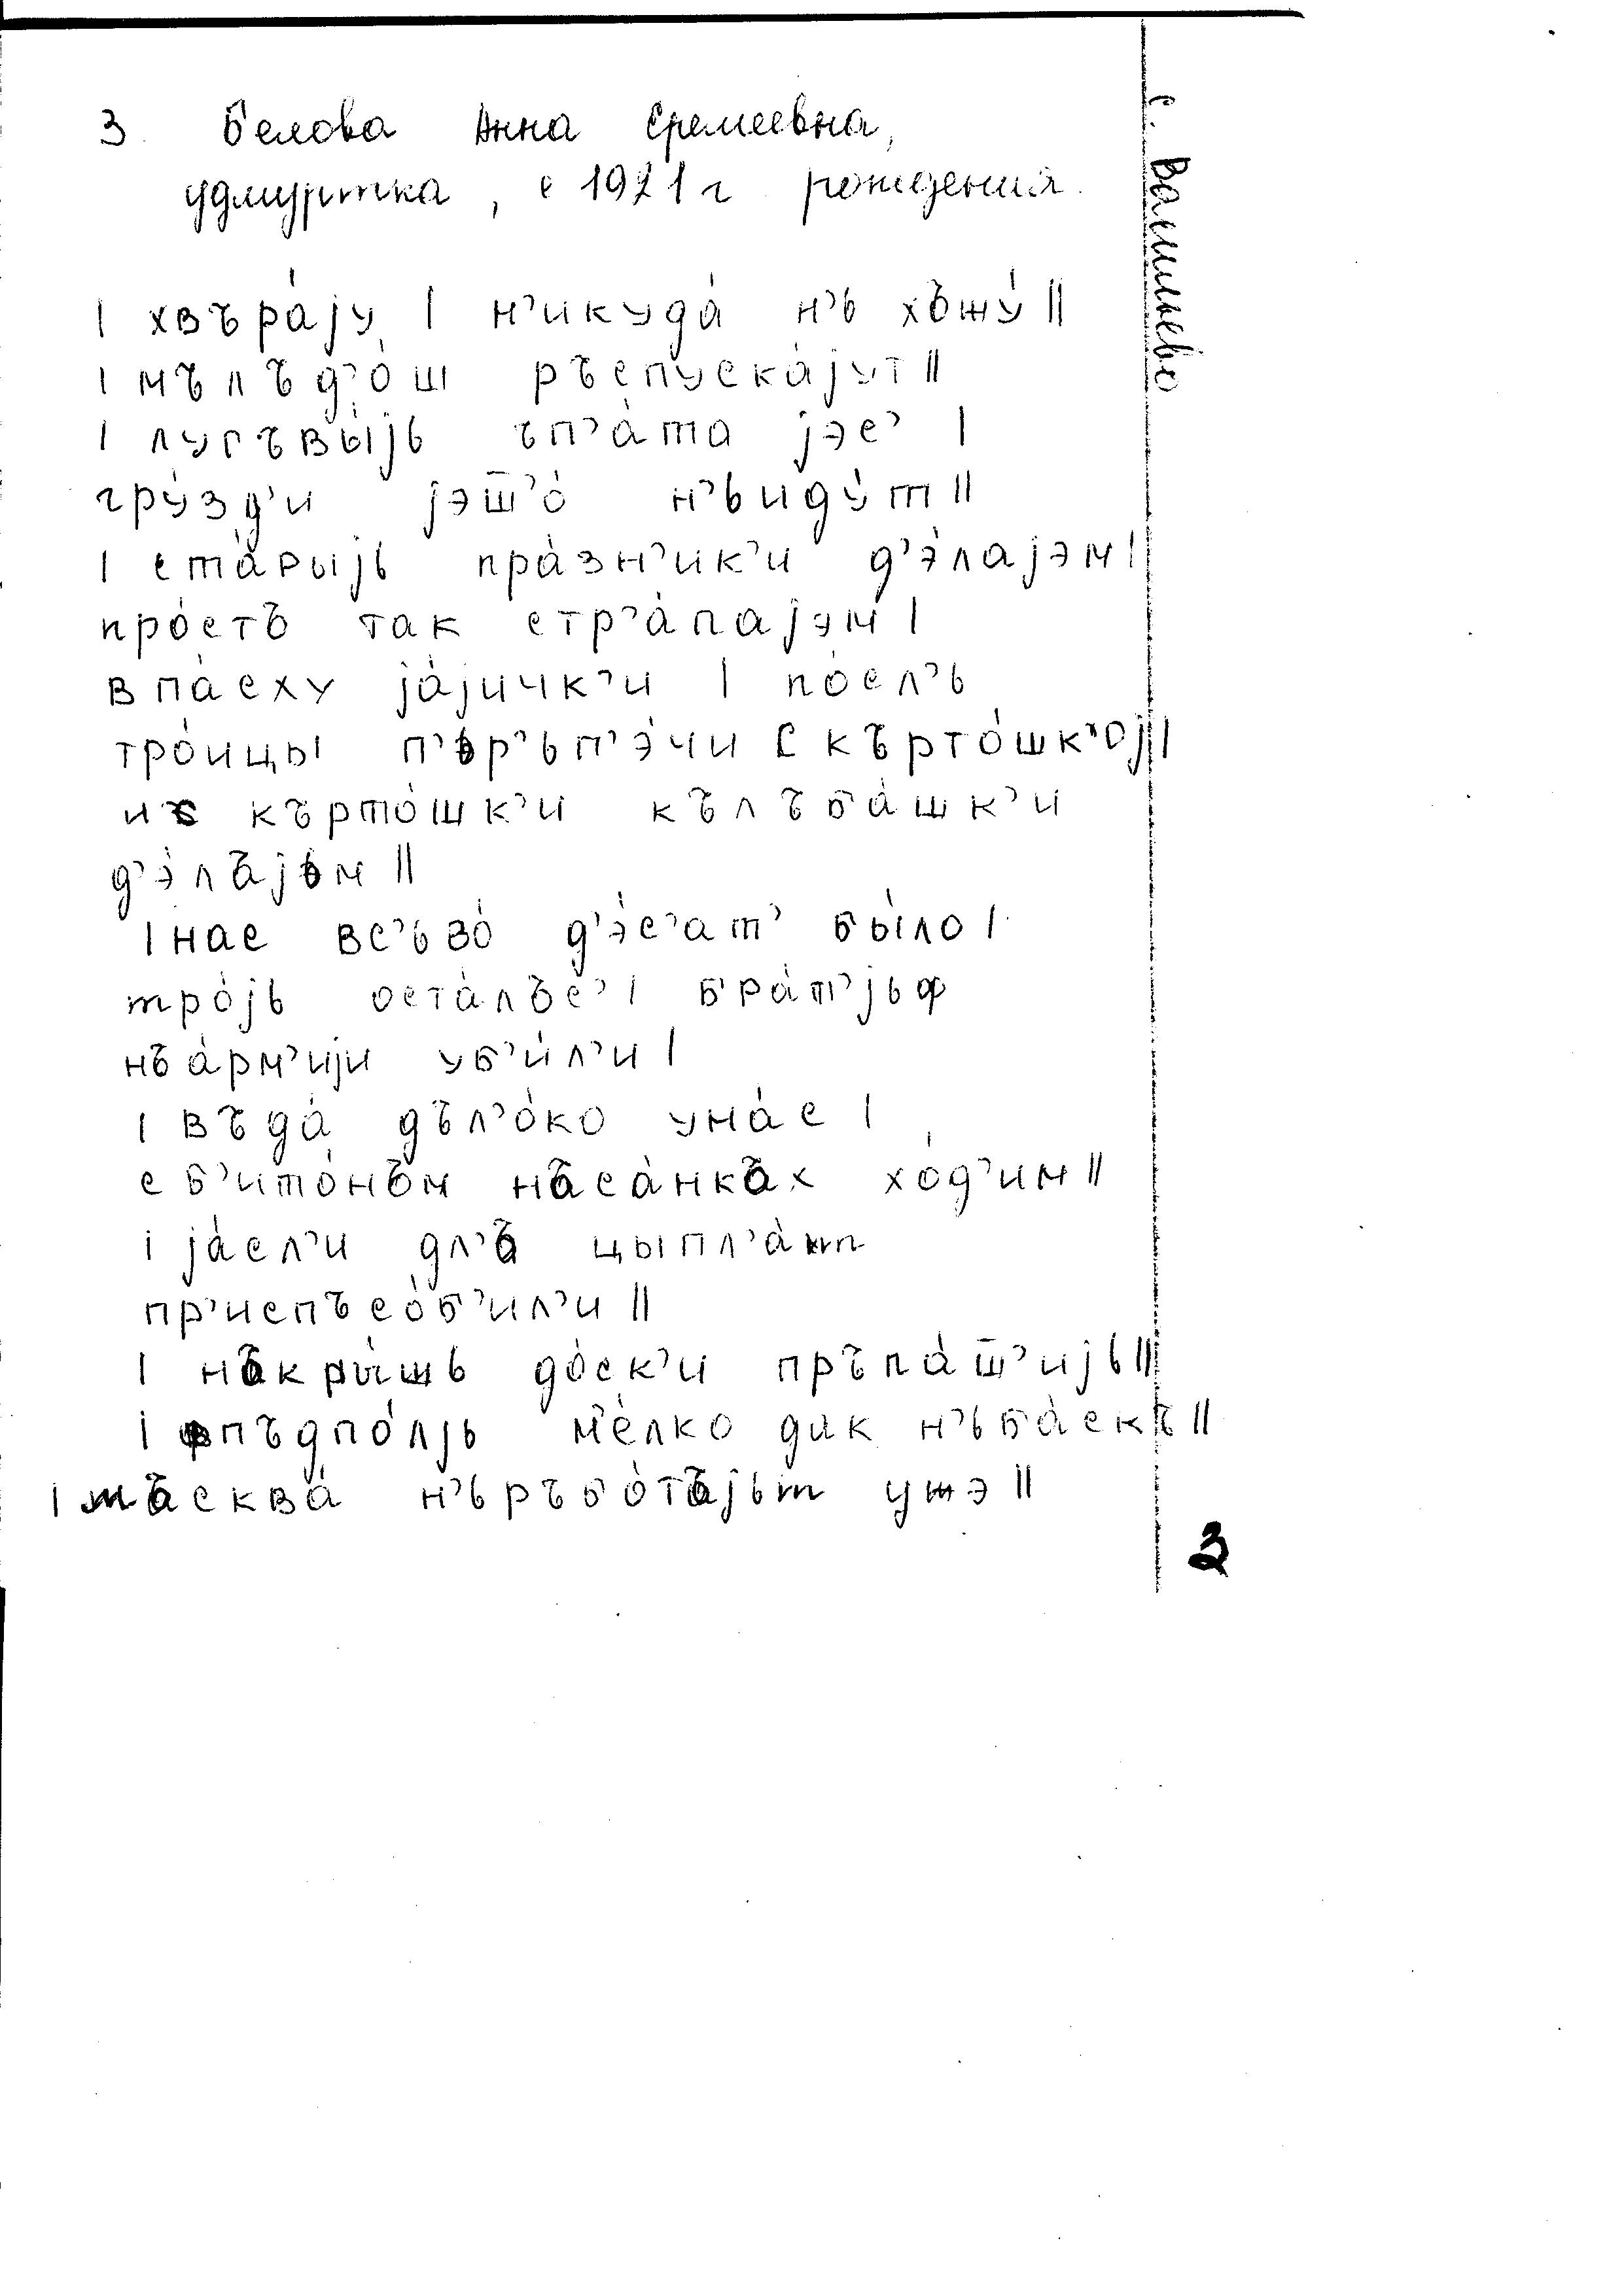 3 Белова Анна Еремеевна,
удмуртка, с 1921 г рождения.
| хвъра́jу | н’икуда́ н’ь хъжу́ ||
| мълъд’о́ш ръспуска́jут ||
| лугъвы́jь ъп’а́та jэс’ |
гру́зд’и jэш̄’о́ н’ьиду́т ||
| ста́рыjь пра́зн’ик’и д’э́лаjэм |
про́стъ так стр’а́паjэм |
в па́сху jа́jичк’и | по́сл’ь
тро́ицы п’ьр’ьп’э́чи с кърто́шк’оj |
ис кърто́шк’и кълъба́шк’и
д’э́лъjьм ||
| нас вс’ьво́ д’э́с’ат’ бы́ло |
тро́jь оста́лъс’ | бра́т’jьф
нъа́рм’иjи уб’и́л’и |
| въда́ дъл’о́ко уна́с |
с б’ито́нъм нъса́нкъх хо́д’им ||
| jа́сл’и дл’ъ цыпл’а́т
пр’испъсо́б’ил’и ||
| нъкры́шь до́ск’и пръпа́ш̄’иjь ||
| фпъдпо́лjь ме́лко дик н’ьба́скъ ||
| мъсква́ н’ьръбо́тъjьт ужэ ||
с. Васильево
3